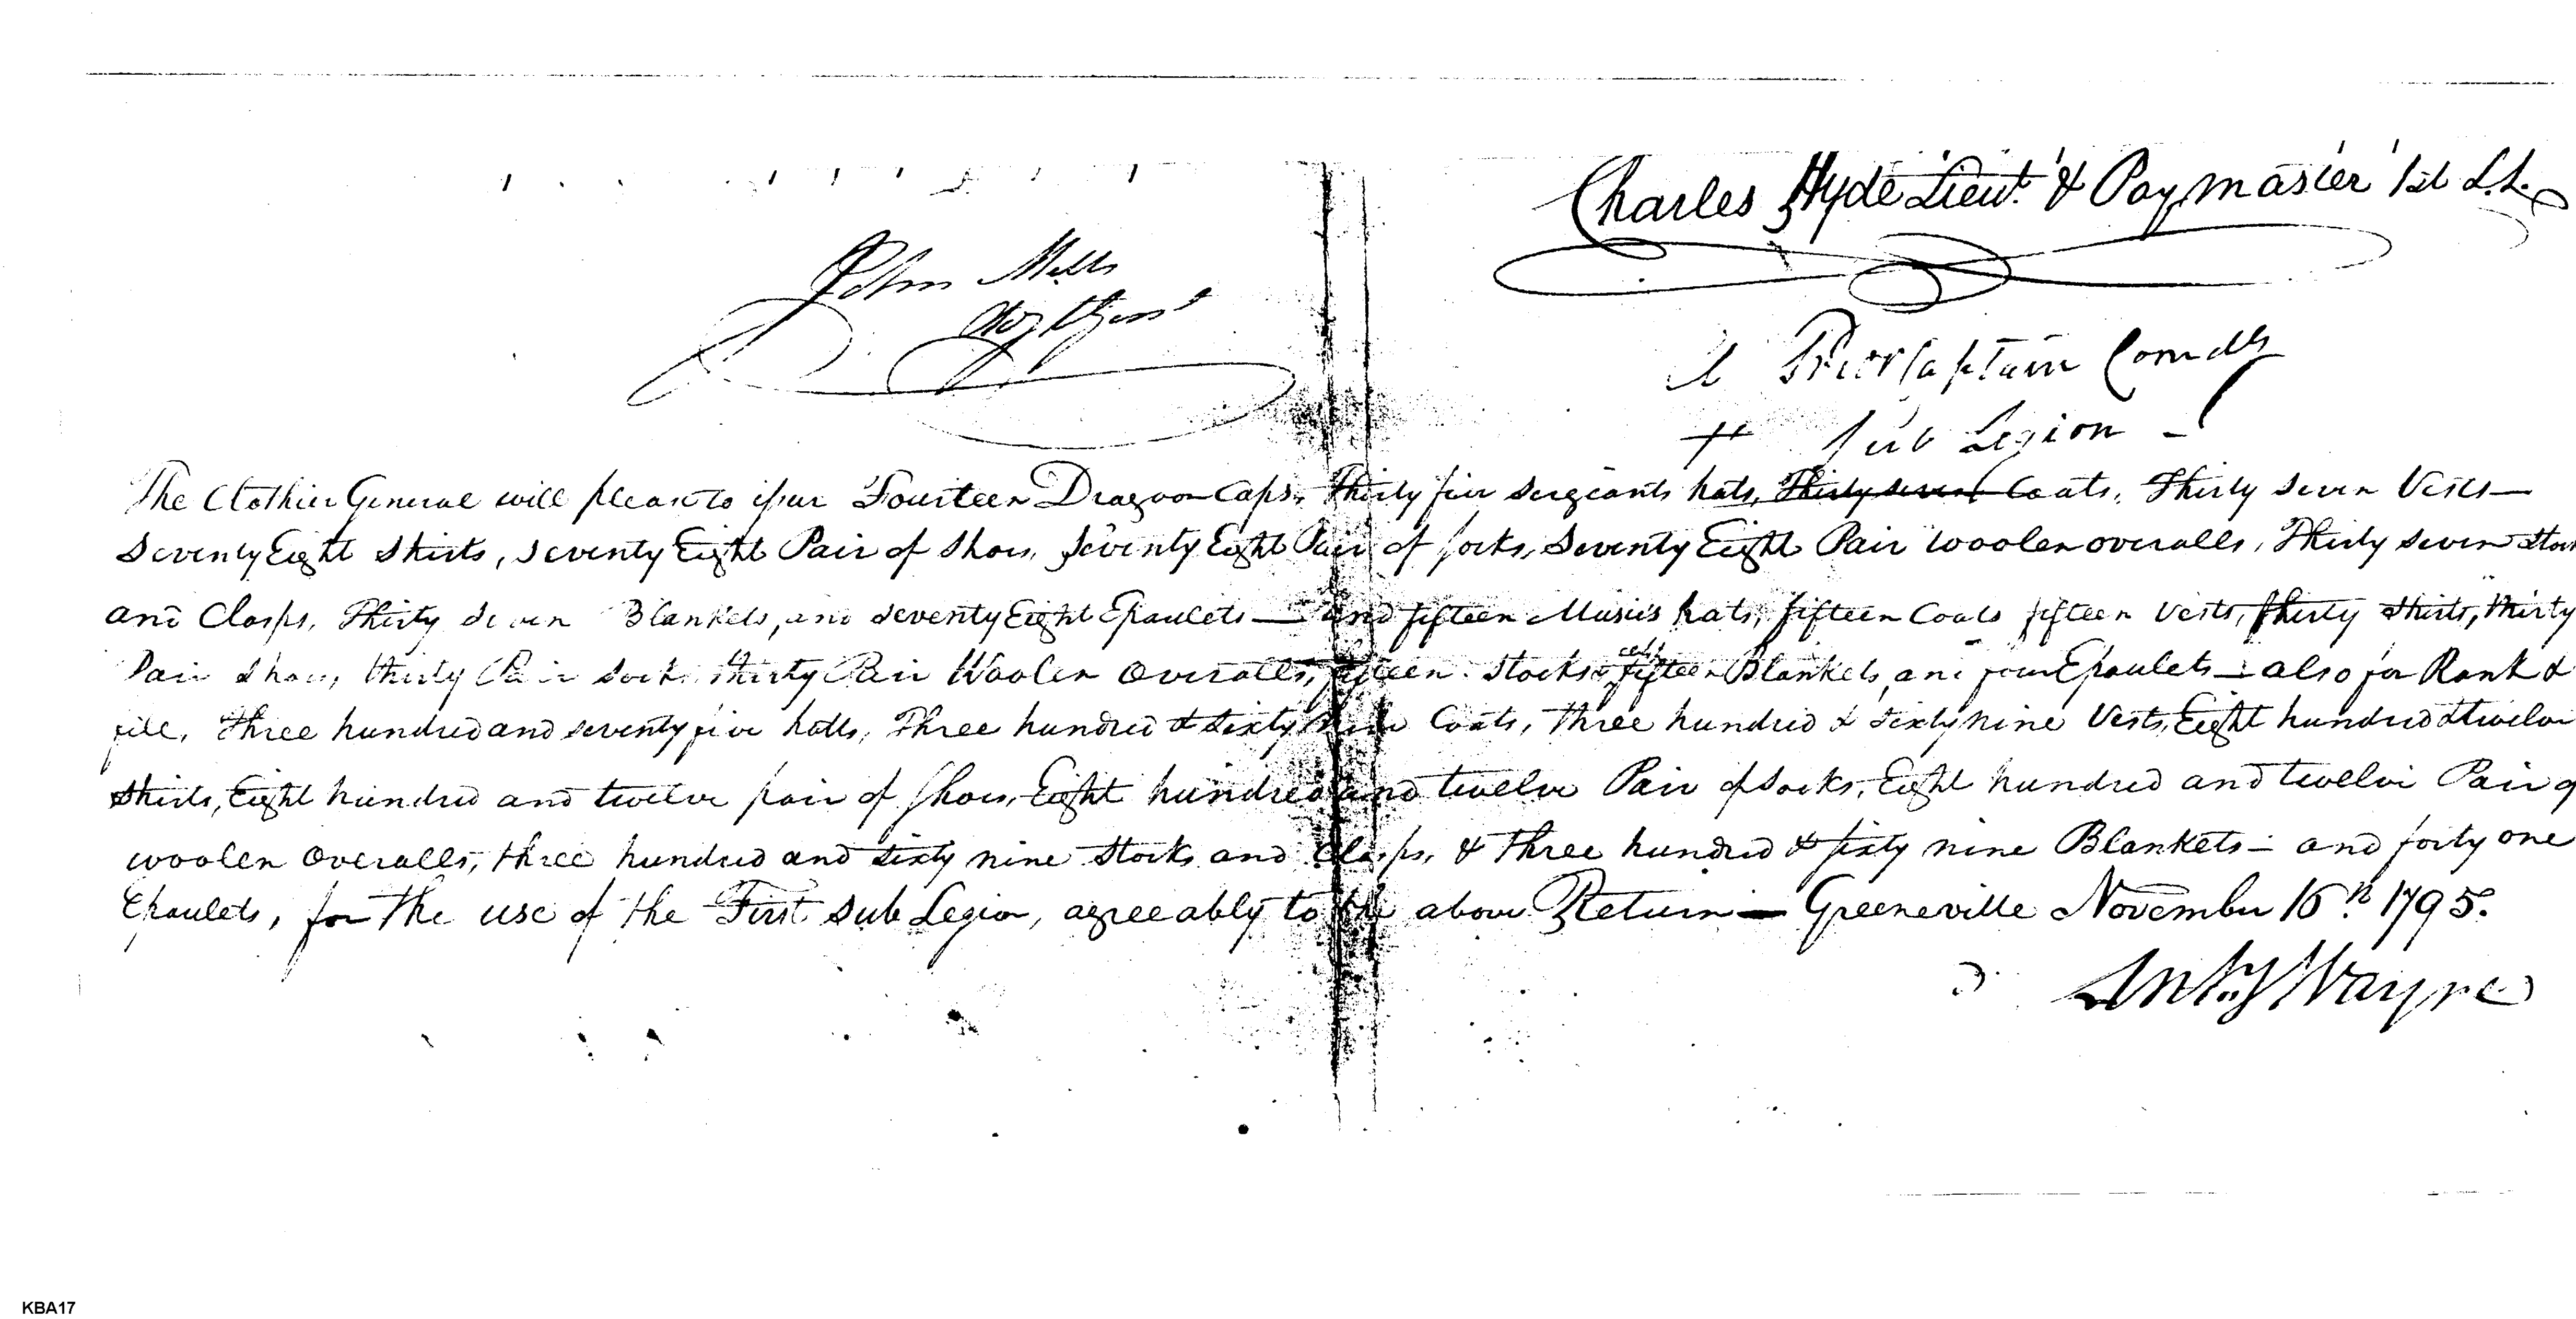 Charles Hyde Lieut. & Paymaster 1st S.L.
John Mills
Adj. Genl
Prior Captain Comdg
Sub Legion
The Clothier General will please to issue Fourteen Dragoon Caps, Thirty five Sergeants hats, Thirty seven Coats, Thirty Seven Vests—
Seventy Eight Shirts, Seventy Eight Pair of Shoes, Seventy Eight Pair of socks, Seventy Eight Pair woolen overalls, Thirty seven Stocks
and Clasps, Thirty Seven Blankets, and Seventy Eight Epaulets— and fifteen Musics hats, fifteen Coats fifteen Vests, Thirty Shirts, thirty
Pair Shoes, thirty Pair Socks thirty Pair Woolen Overalls, fifteen Stocks & fifteen Blankets, and four Epaulets— also for Rank &
file, Three hundred and seventy five hatts, Three hundred & sixty nine Coats, three hundred & sixty nine Vests, Eight hundred & twelve
Shirts, Eight hundred and twelve pair of Shoes, Eight hundred and twelve Pair of Socks, Eight hundred and twelve Pair of
woolen Overalls, three hundred and sixty nine Stocks and Clasps, & three hundred & sixty nine Blankets— and forty one
Epaulets, for the use of the First Sub Legion, agreeably to the above Return— Greeneville November 16th 1795.
Anty Wayne
KBA17